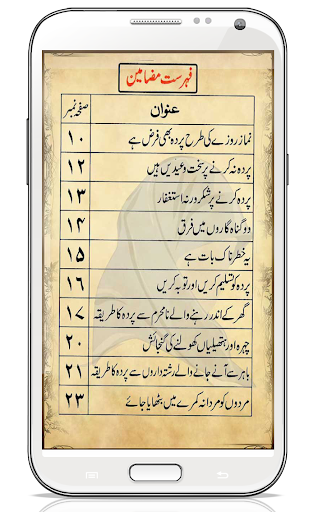 فہرست مضامین
عنوان صفحہ نمبر
نماز روزے کی طرح پردہ بھی فرض ہے ۱۰
پردہ نہ کرنے پر سخت وعیدیں ہیں ۱۲
پردہ کرنے پر شکر ورنہ استغفار ۱۳
دو گناہ گاروں میں فرق ۱۴
یہ خطرناک بات ہے ۱۵
پردہ کو تسلیم کریں اور توبہ کریں ۱۶
گھر کے اندر رہنے والے نامحرم سے پردہ کا طریقہ ۱۷
چہرہ اور ہتھیلیاں کھولنے کی گنجائش ۲۰
باہر سے آنے جانے والے رشتہ داروں سے پردہ کا طریقہ ۲۱
مردوں کو مردانہ کمرے میں بٹھایا جائے ۲۳